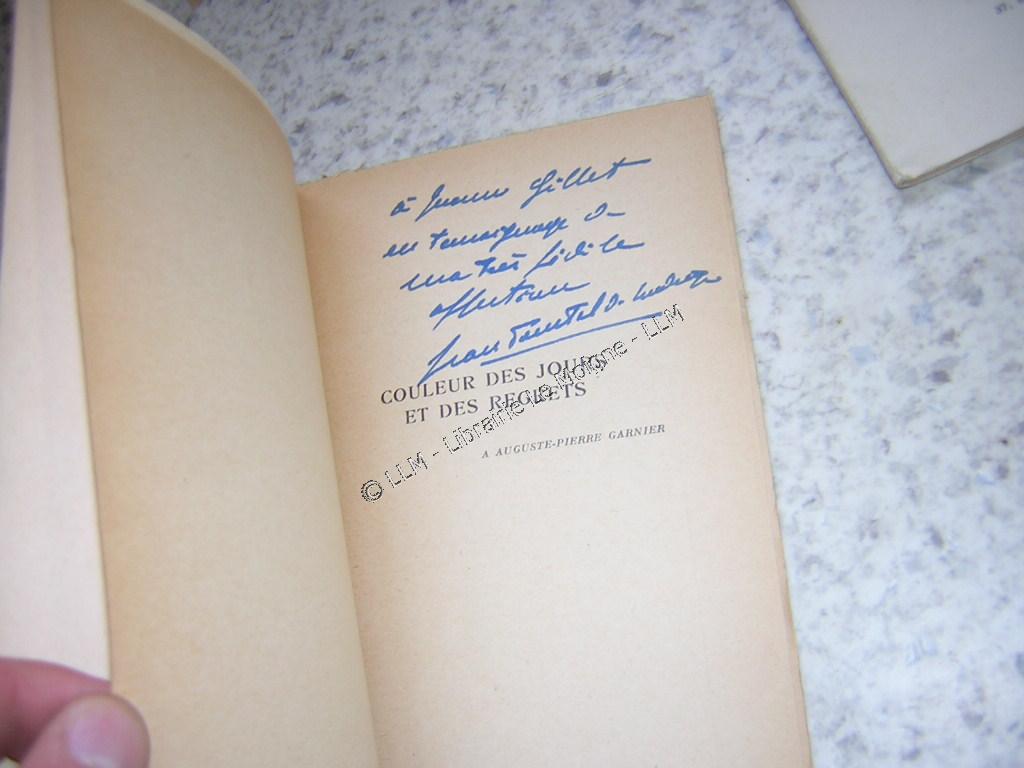 à Gillet
en témoignage de
ma très fidèle
affection
Jean
COULEUR DES JOURS
ET DES REGRETS
A AUGUSTE-PIERRE GARNIER
© LLM - Librairie Le Moigne - LLM